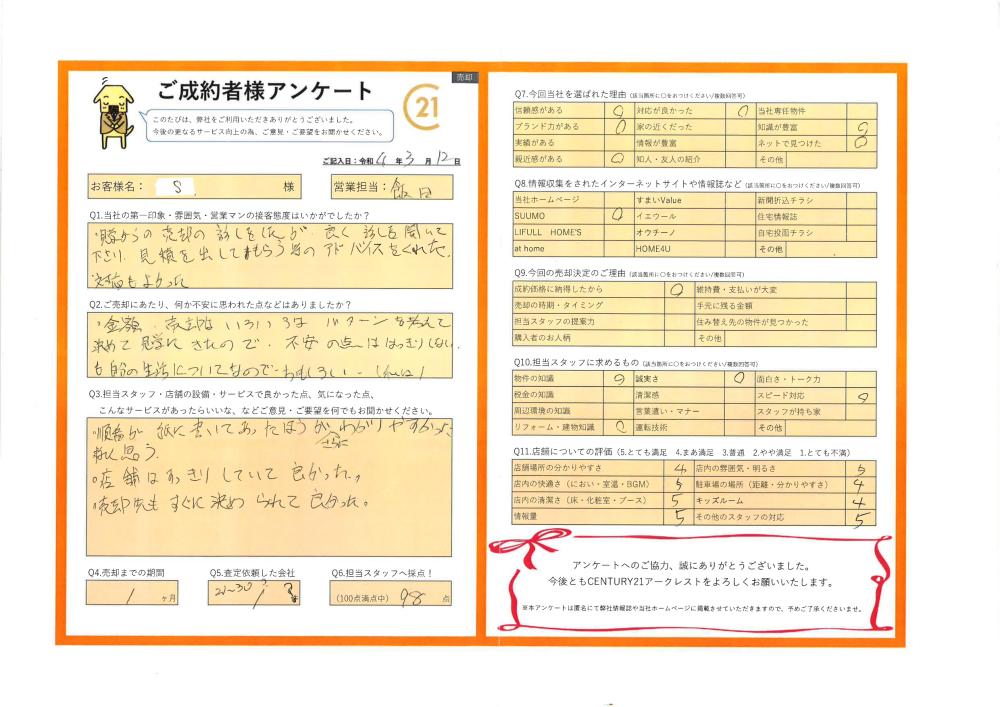 売却
ご成約者様アンケート
21
このたびは、弊社をご利用いただきありがとうございました。
今後の更なるサービス向上の為、ご意見・ご要望をお聞かせください。
ご記入日：令和 4 年 3 月 12 日
お客様名： S 様
営業担当：飯田
Q1.当社の第一印象・雰囲気・営業マンの接客態度はいかがでしたか？
売却の話しをしたが、良く話しを聞いて
下さり、見積を出してもらう等のアドバイスをくれた。
対応もよかった
Q2.ご売却にあたり、何か不安に思われた点などはありましたか？
・金額、売却はいろいろなパターンを考えて
決めて見学にきたので、不安の点ははっきりしない。
自分の生活についてなので
Q3.担当スタッフ・店舗の設備・サービスで良かった点、気になった点、
こんなサービスがあったらいいな、などご意見・ご要望を何でもお聞かせください。
・順番が紙に書いてあったほうがわかりやすかった
思う。
・店舗はすっきりしていて良かった。
・売却先もすぐに決められて良かった。
Q4.売却までの期間
1 ヶ月
Q5.査定依頼した会社
21～30
Q6.担当スタッフへ採点！
(100点満点中) 98 点
Q7.今回当社を選ばれた理由（該当箇所に〇をおつけください/複数回答可）
信頼感がある ○ 対応が良かった ○ 当社専任物件
ブランド力がある ○ 家の近くだった 知識が豊富 ○
実績がある 情報が豊富 ネットで見つけた ○
親近感がある ○ 知人・友人の紹介 その他
Q8.情報収集をされたインターネットサイトや情報誌など（該当箇所に〇をおつけください/複数回答可）
当社ホームページ すまいValue 新聞折込チラシ
SUUMO ○ イエウール 住宅情報誌
LIFULL HOME'S オウチーノ 自宅投函チラシ
at home HOME4U その他
Q9.今回の売却決定のご理由（該当箇所に〇をおつけください/複数回答可）
成約価格に納得したから ○ 維持費・支払いが大変
売却の時期・タイミング 手元に残る金額
担当スタッフの提案力 住み替え先の物件が見つかった
購入者のお人柄 その他
Q10.担当スタッフに求めるもの（該当箇所に〇をおつけください/複数回答可）
物件の知識 ○ 誠実さ ○ 面白さ・トーク力
税金の知識 清潔感 スピード対応 ○
周辺環境の知識 言葉遣い・マナー スタッフが持ち家
リフォーム・建物知識 ○ 運転技術 その他
Q11.店舗についての評価（5.とても満足 4.まあ満足 3.普通 2.やや満足 1.とても不満）
店舗場所の分かりやすさ 4 店内の雰囲気・明るさ 5
店内の快適さ（におい・室温・BGM） 5 駐車場の場所（距離・分かりやすさ） 4
店内の清潔さ（床・化粧室・ブース） 5 キッズルーム 4
情報量 5 その他のスタッフの対応 5
アンケートへのご協力、誠にありがとうございました。
今後ともCENTURY21アークレストをよろしくお願いいたします。
※本アンケートは匿名にて弊社情報誌や当社ホームページに掲載させていただきますので、予めご了承くださいませ。